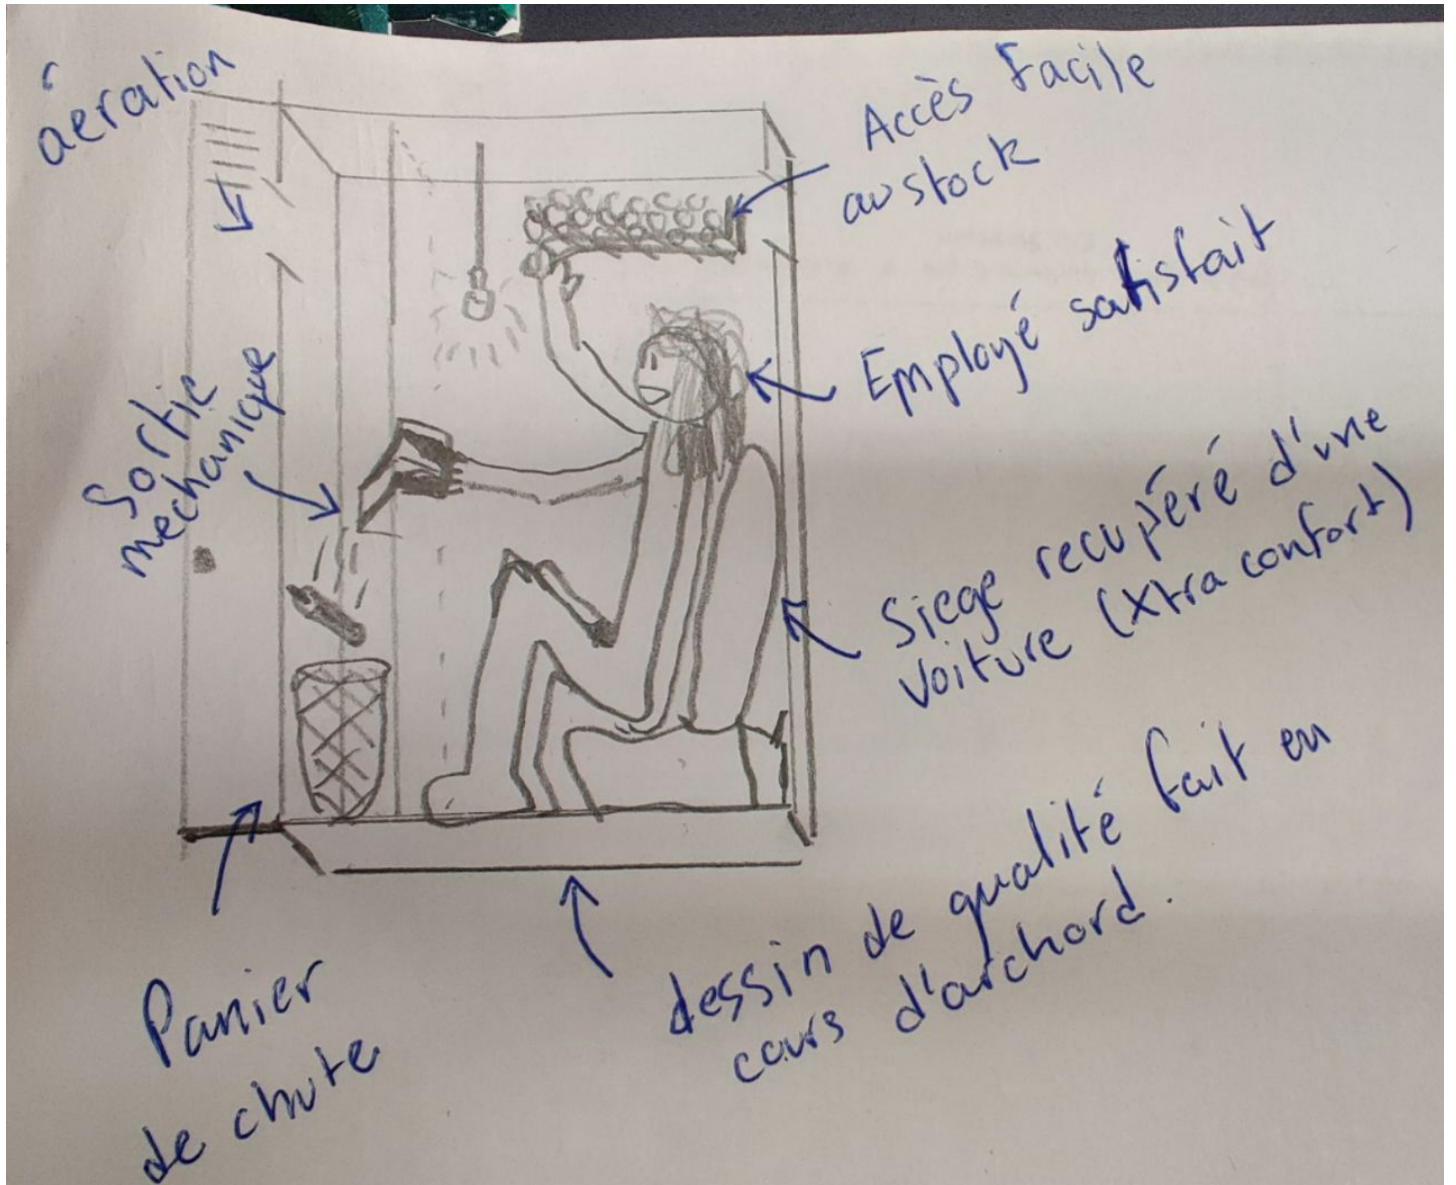 áeration
Accès Facile
au stock
Employé satisfait
Sortie
méchanique
Siege recupéré d'une
voiture (Xtra confort)
dessin de qualité fait en
cours d'archord.
Panier
de chute